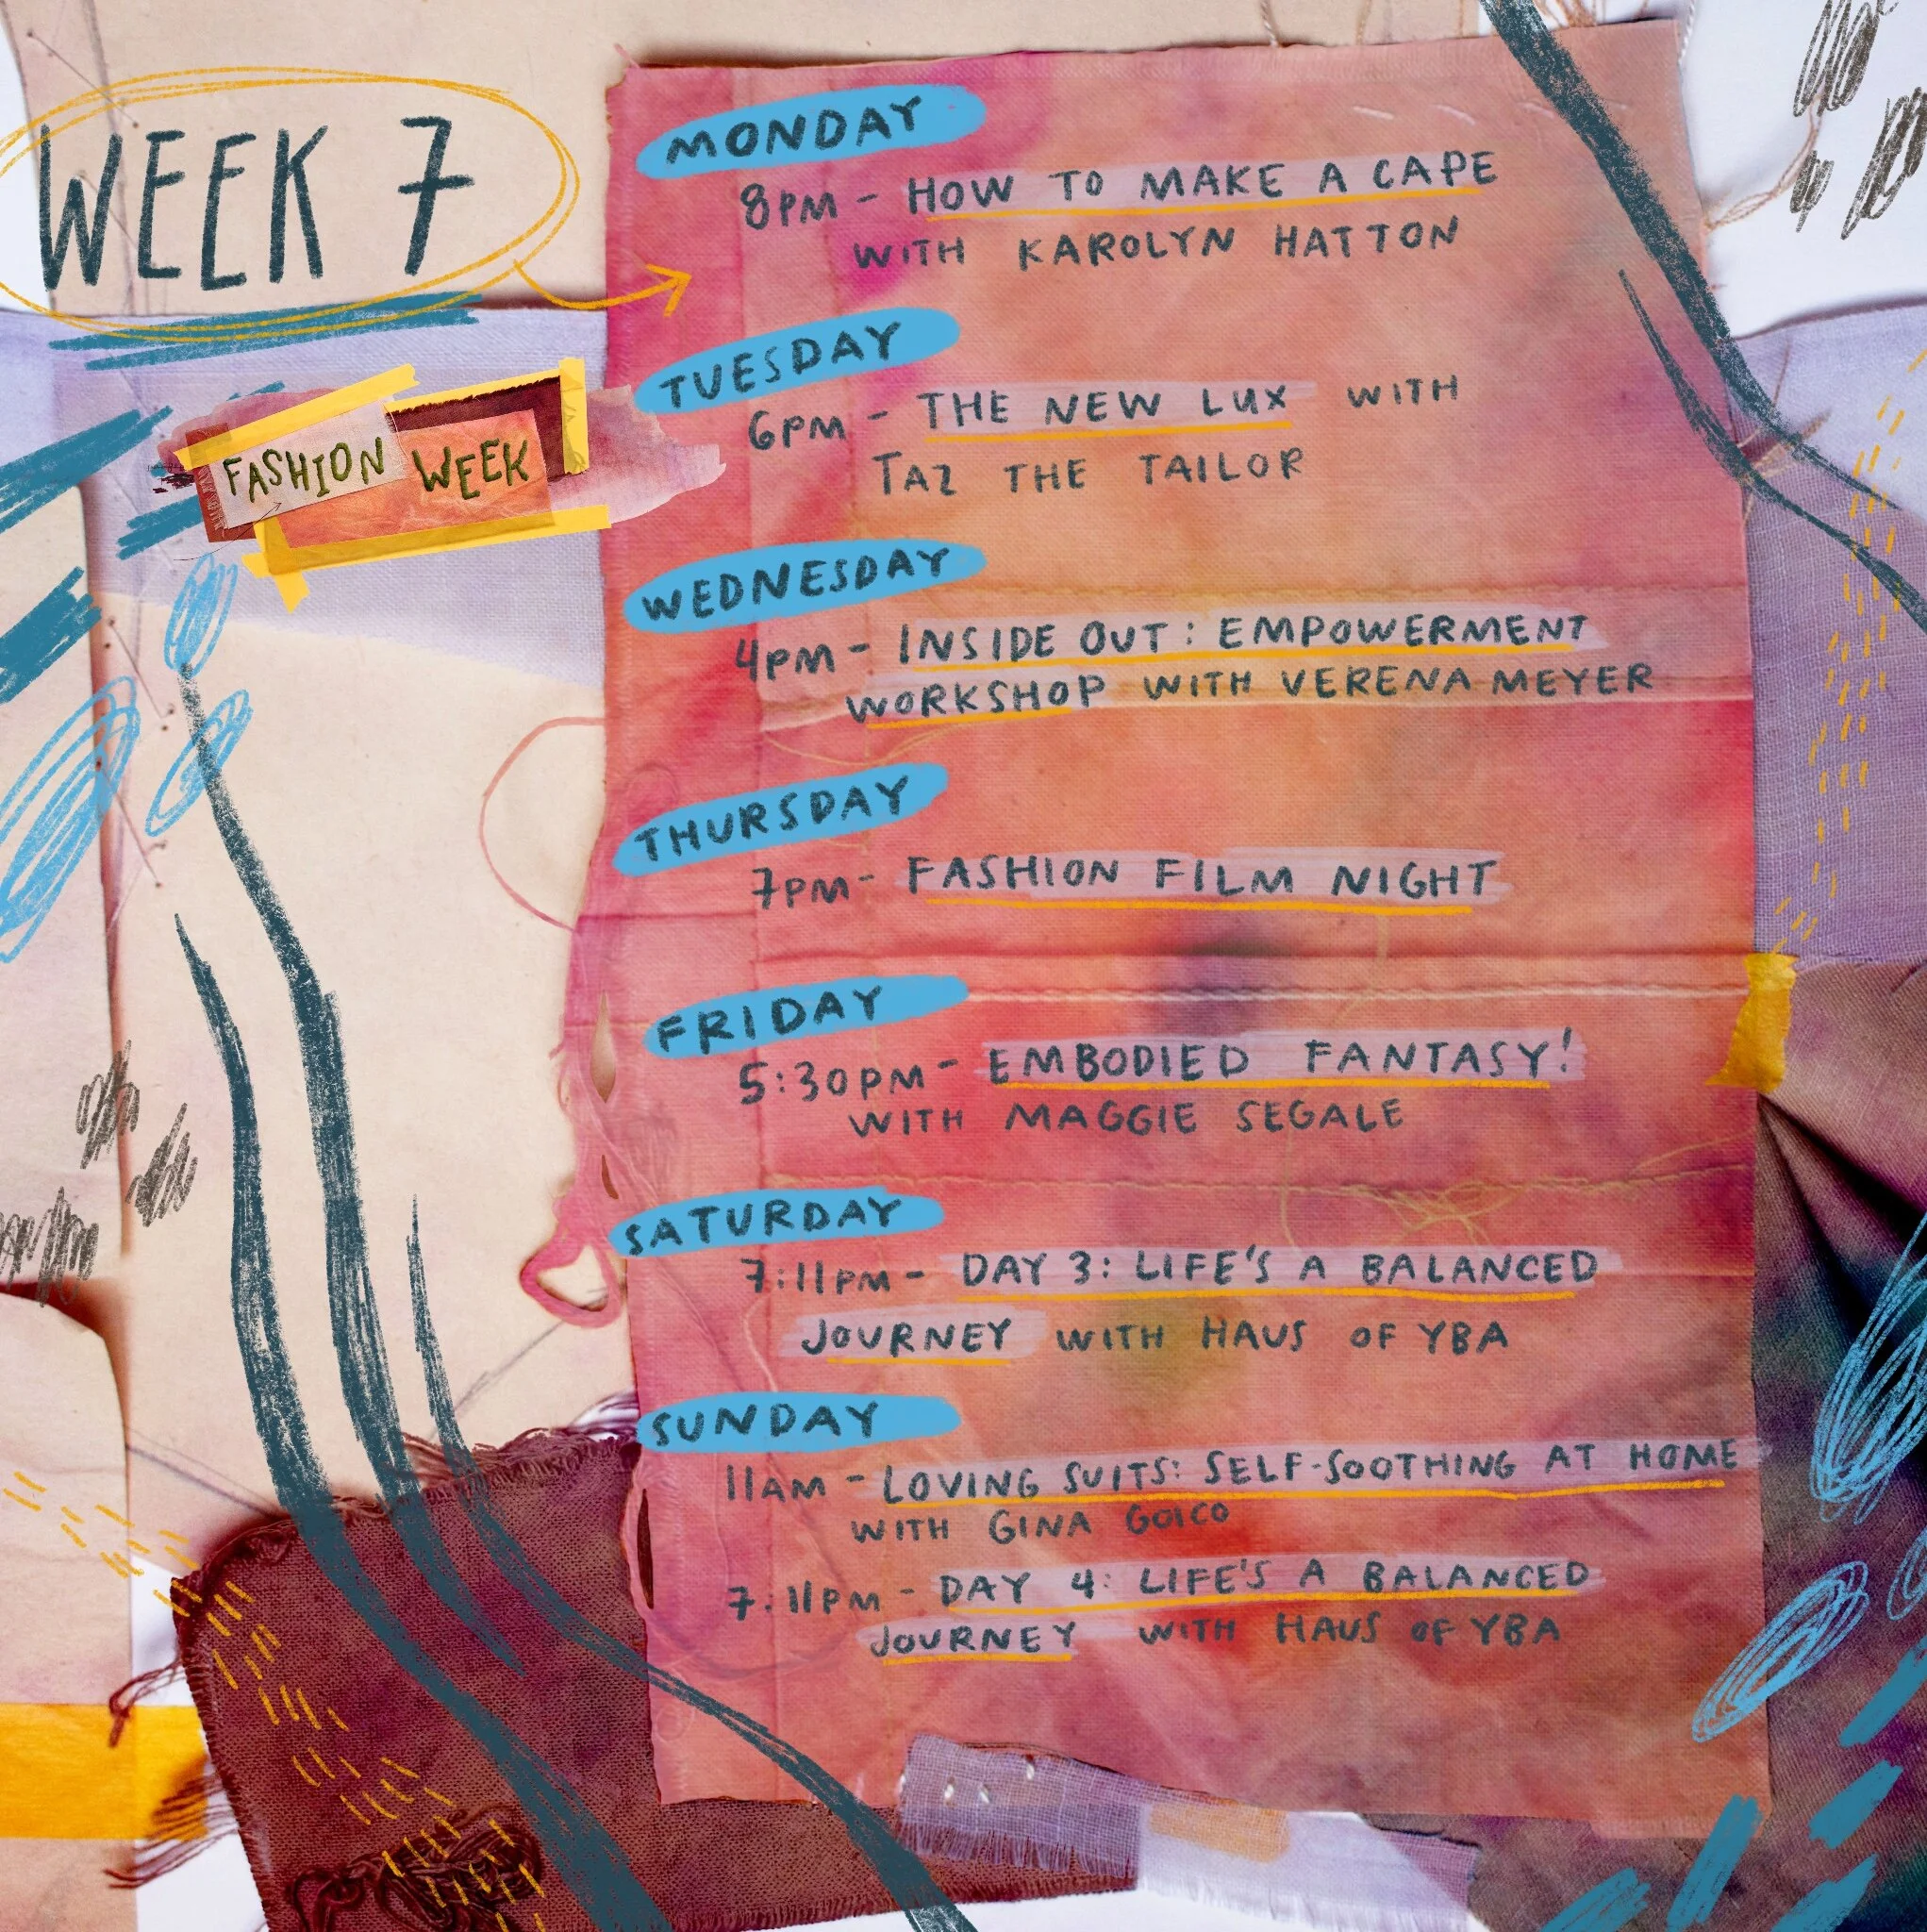 WEEK 7
FASHION WEEK
MONDAY
8PM - HOW TO MAKE A CAPE
WITH KAROLYN HATTON
TUESDAY
6PM - THE NEW LUX WITH
TAZ THE TAILOR
WEDNESDAY
4PM - INSIDE OUT: EMPOWERMENT
WORKSHOP WITH VERENA MEYER
THURSDAY
7PM - FASHION FILM NIGHT
FRIDAY
5:30PM - EMBODIED FANTASY!
WITH MAGGIE SEGALE
SATURDAY
7:11PM - DAY 3: LIFE'S A BALANCED
JOURNEY WITH HAUS OF YBA
SUNDAY
11AM - LOVING SUITS: SELF-SOOTHING AT HOME
WITH GINA GOICO
7:11PM - DAY 4: LIFE'S A BALANCED
JOURNEY WITH HAUS OF YBA